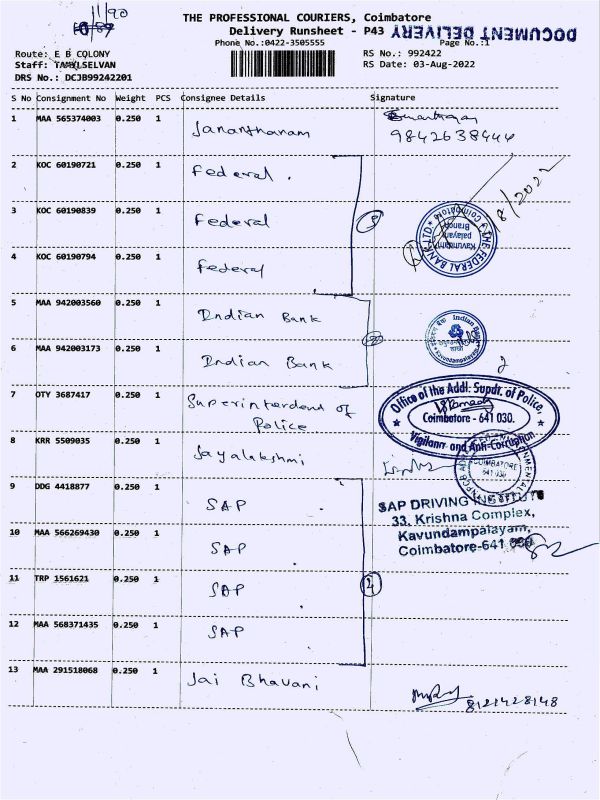 11/90
THE PROFESSIONAL COURIERS, Coimbatore
Delivery Runsheet - P43
DOCUMENT DELIVERY
Phone No.:0422-3505555
Page No.:1
Route: E B COLONY
Staff: TAMILSELVAN
DRS No.: DCJB99242201
RS No.: 992422
RS Date: 03-Aug-2022
S No Consignment No Weight PCS Consignee Details Signature
1 MAA 565374003 0.250 1 Jananthanam
9842638444
2 KOC 60190721 0.250 1 Federal.
3 KOC 60190839 0.250 1 Federal
4 KOC 60190794 0.250 1 Federal
3
THE FEDERAL BANK LTD
Kavundam
palayam
Branch
Coimbatore
8/2022
5 MAA 942003560 0.250 1 Indian Bank
6 MAA 942003173 0.250 1 Indian Bank
2
Indian Bank
2
7 OTY 3687417 0.250 1 Superintendent of
Police
Office of the Addl. Supdt. of Police,
Coimbatore - 641 030.
Vigilance and Anti-Corruption.
8 KRR 5509035 0.250 1 Jayalakshmi
COIMBATORE
641 030
9 DDG 4418877 0.250 1 SAP
SAP DRIVING INSTITUTE
33, Krishna Complex,
Kavundampalayam,
Coimbatore-641 030
10 MAA 566269430 0.250 1 SAP
11 TRP 1561621 0.250 1 SAP
4
12 MAA 568371435 0.250 1 SAP
13 MAA 291518068 0.250 1 Jai Bhavani
8121428148